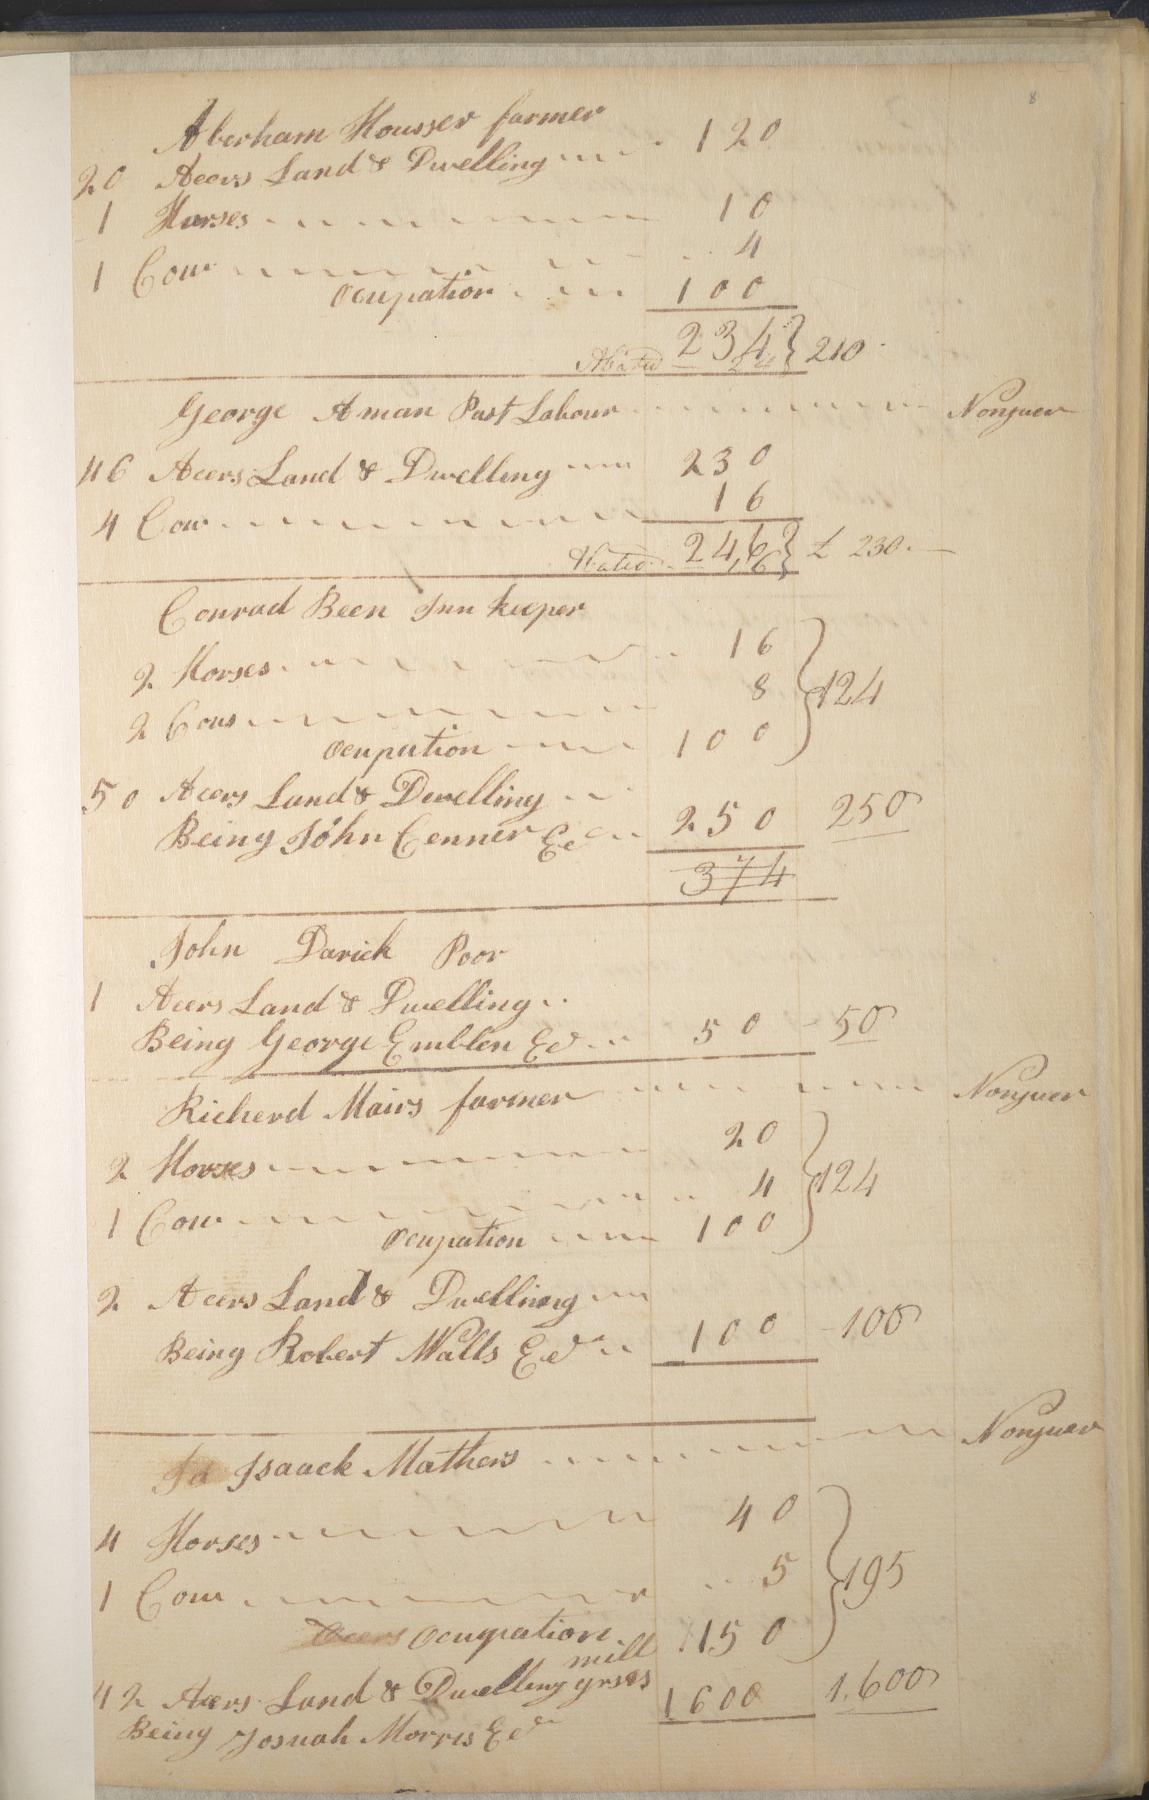 8
Aberham Housser farmer
20 Acers Land & Dwelling 120
1 Horses 10
1 Cow 4
Ocupation 100
234 } 210
Abated 24
George Aman Past Labour Nonjuer
46 Acers Land & Dwelling 230
4 Cow 16
246 } £ 230
Abated 16
Conrad Been Inn keeper
2 Horses 16
2 Cows 8 } 124
Ocupation 100
50 Acers Land & Dwelling
Being John Cenner Ed 250 250
374
John Darick Poor
1 Acers Land & Dwelling
Being George Emblen Ed 50 50
Richerd Mairs farmer Nonjuer
2 Horses 20
1 Cow 4 } 124
Ocupation 100
2 Acers Land & Dwelling
Being Robert Walls Ed 100 100
Isaack Mathers Nonjuer
4 Horses 40
1 Cow 5 } 195
Ocupation 150
mill
42 Acers Land & Dwelling 1600 1,600
Being Josuah Morris Ed